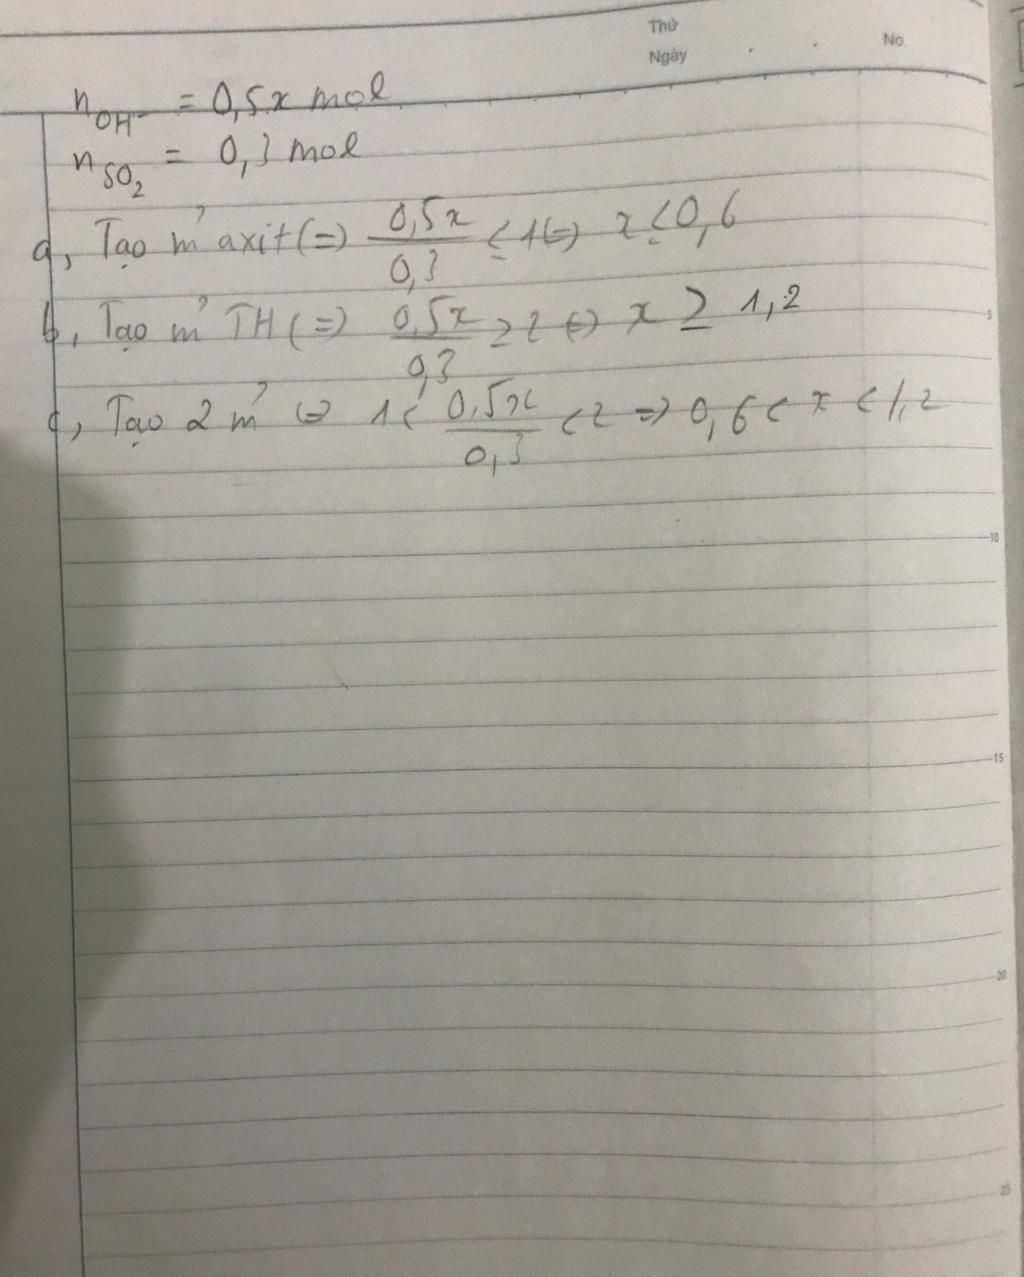 Thứ
Ngày
No.
n OH⁻ = 0,5x mol
n SO₂ = 0,3 mol
a, Tạo m' axit (=) 0,5x / 0,3 ≤ 1 (=) x ≤ 0,6
b, Tạo m' TH (=) 0,5x / 0,3 ≥ 2 (=) x ≥ 1,2
c, Tạo 2 m' (=) 1 < 0,5x / 0,3 < 2 => 0,6 < x < 1,2
5
10
15
20
25